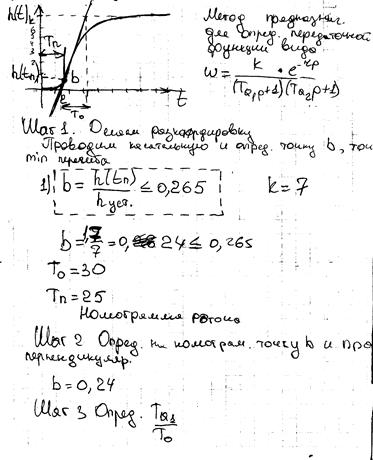 h(t) k
6
5
4
3
2
Tп
h(tп)
b
2
t
To
Метод предназнач.
для опред. передаточной
функции вида
W = k · e^-τp / (TQ1p+1)(TQ2p+1)
Шаг 1. Делаем
Проводим касательную и опред. точку b, точ
min перегиба
1) b = h(tп) / h уст. ≤ 0,265 k = 7
b = 1,7 / 7 = 0, 24 ≤ 0,265
To = 30
Tп = 25
Номограмма
Шаг 2 Опред. на номограм. точку b и про
перпендикуляр.
b = 0,24
Шаг 3 Опред. TQ1 / To